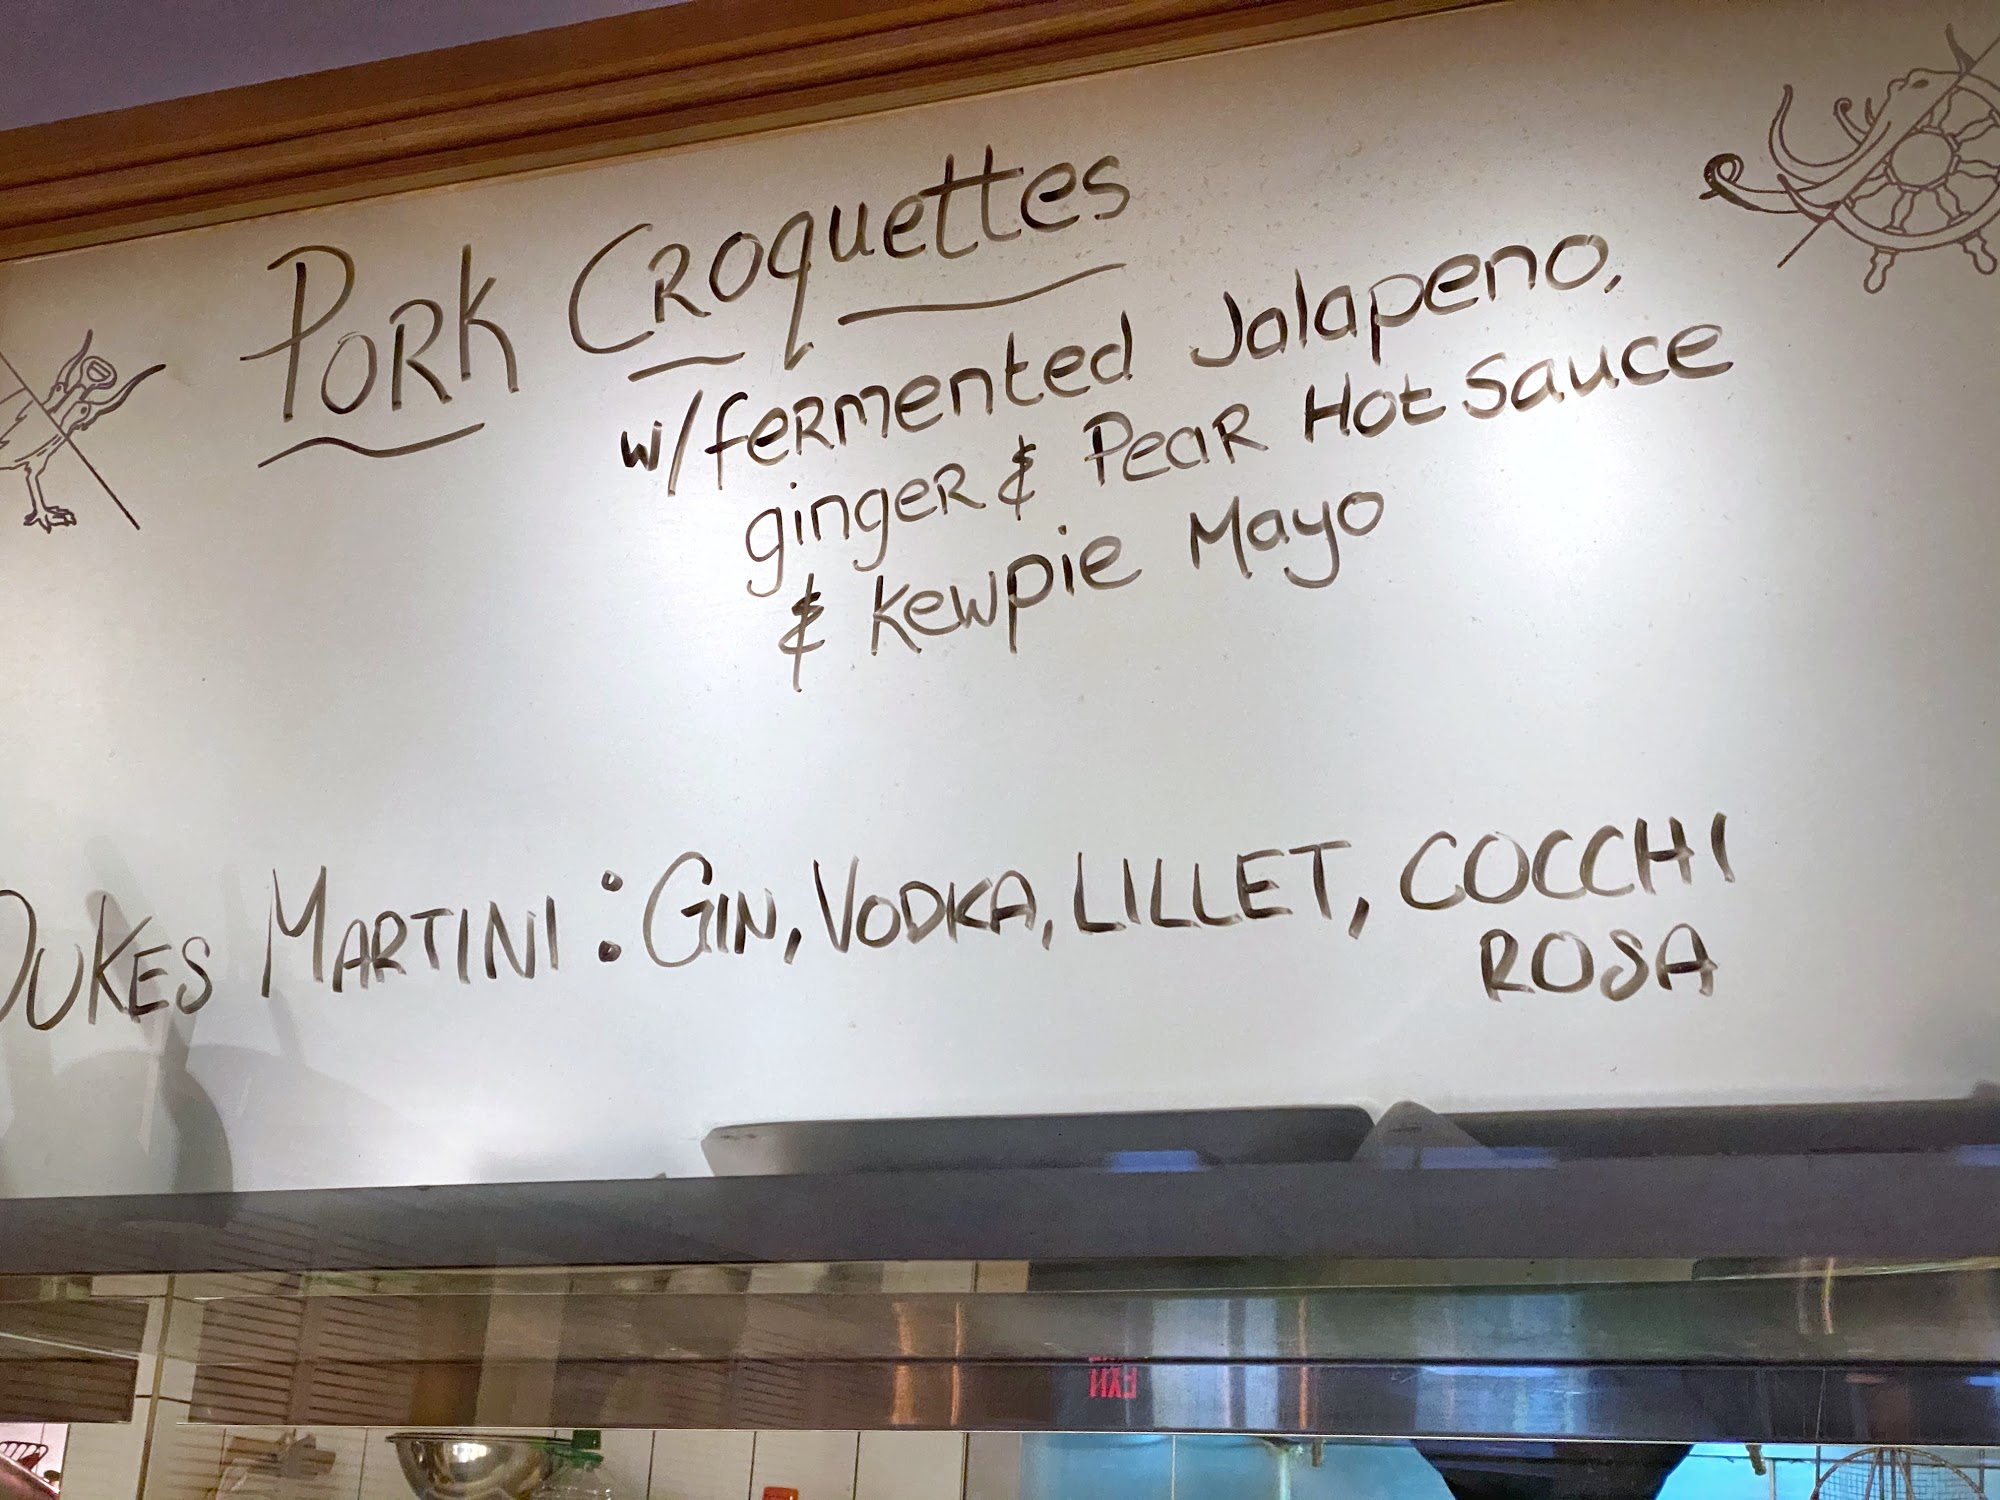 Pork Croquettes
w/fermented Jalapeno,
ginger & Pear Hot Sauce
& Kewpie Mayo
DUKES MARTINI: GIN, VODKA, LILLET, COCCHI
ROSA